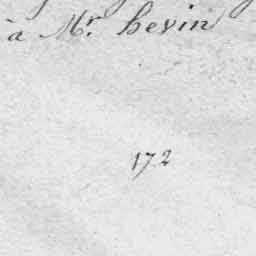 à Mr. hevin
172